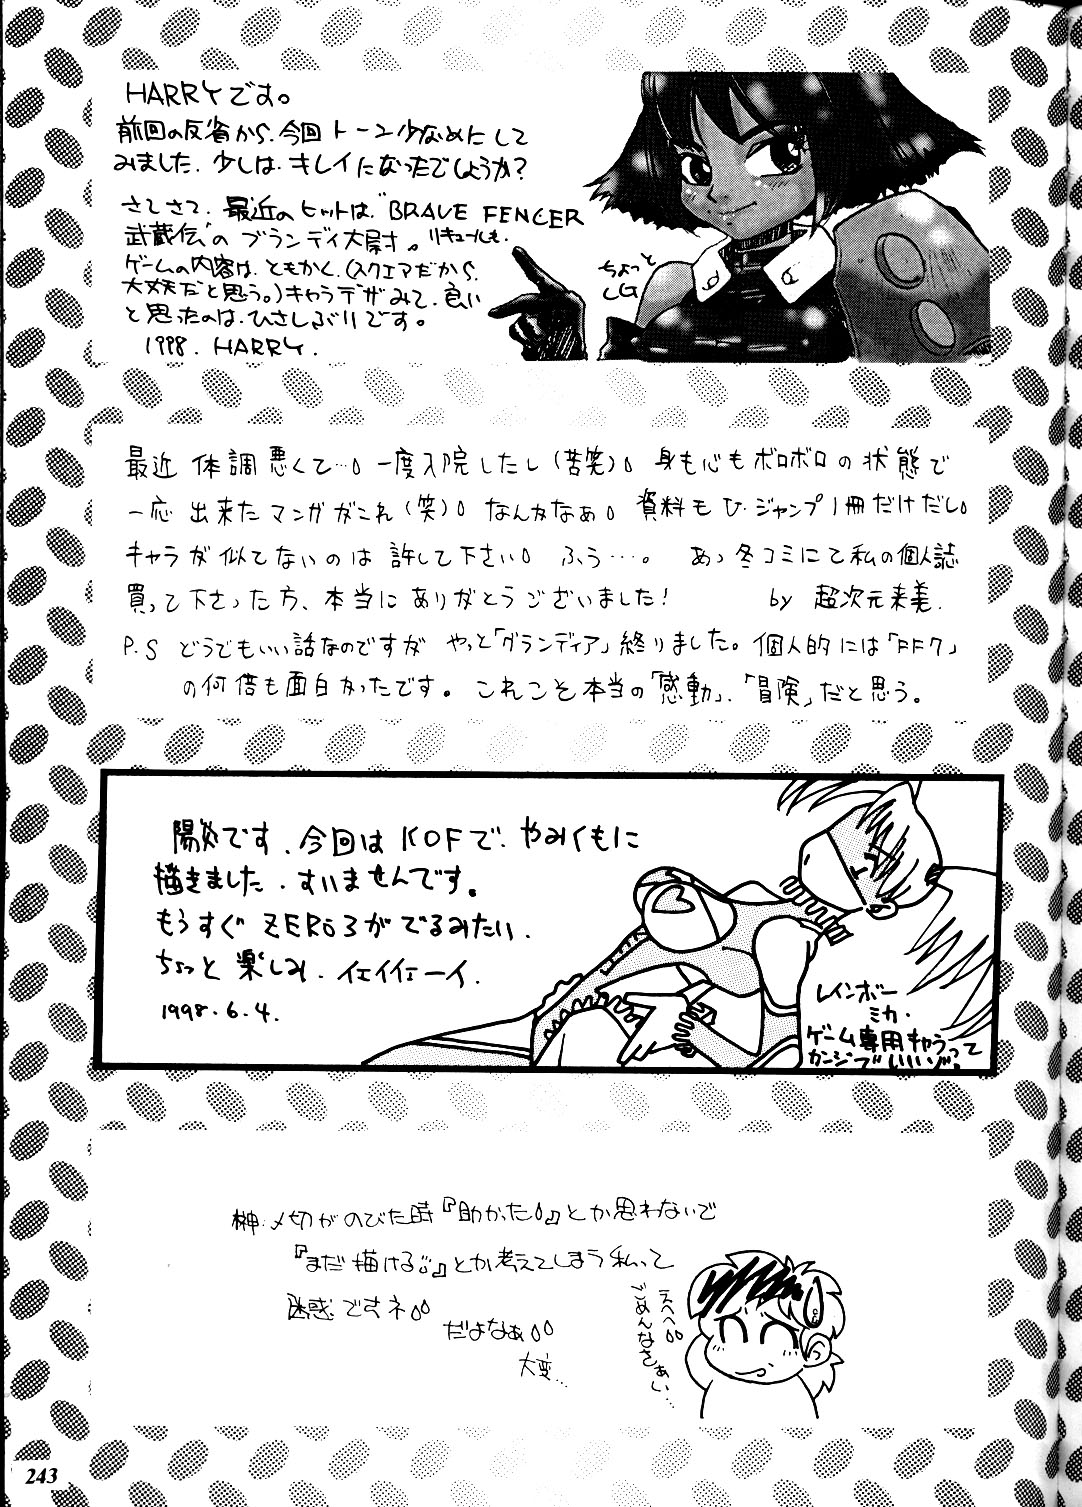 HARRYです。
前回の反省から、今回トーン少なめにして
みました、少しは、キレイになったでしょうか?
さてさて、最近のヒットは、"BRAVE FENCER
武蔵伝"の ブランディ大尉。リキュールも、
ゲームの内容は、ともかく、(スクエアだから、
大丈夫だと思う。)キャラデザみて、良い
と思ったのは、ひさしぶりです。
1998. HARRY.
ちょっと
CG
最近 体調 悪くて…。一度入院したし(苦笑)。身も心もボロボロの状態で
一応 出来たマンガがこれ(笑)。なんかなぁ。資料もV・ジャンプ1冊だけだし。
キャラが似てないのは 許して下さい。ふぅ…。あっ冬コミにて私の個人誌
買って下さった方、本当にありがとうございました! by 超次元来美.
P.S どうでもいい話なのですが やっと「グランディア」終りました。個人的には「FF7」
の何倍も面白かったです。これこそ本当の「感動」、「冒険」だと思う。
陽炎です、今回はKOFで、やみくもに
描きました、すいませんです。
もうすぐ ZERO3がでるみたい、
ちょっと 楽しみ、イェイイェーイ.
1998.6.4.
レインボー
ミカ・
ゲーム専用キャラって
カンジでいいゾ。
榊:〆切がのびた時『助かった。』とか思わないで
『まだ描ける。』とか考えてしまう私って
迷惑ですネ。。
だよなぁ。。
大変…
えへへ。。
ごめんなさぁい…
243